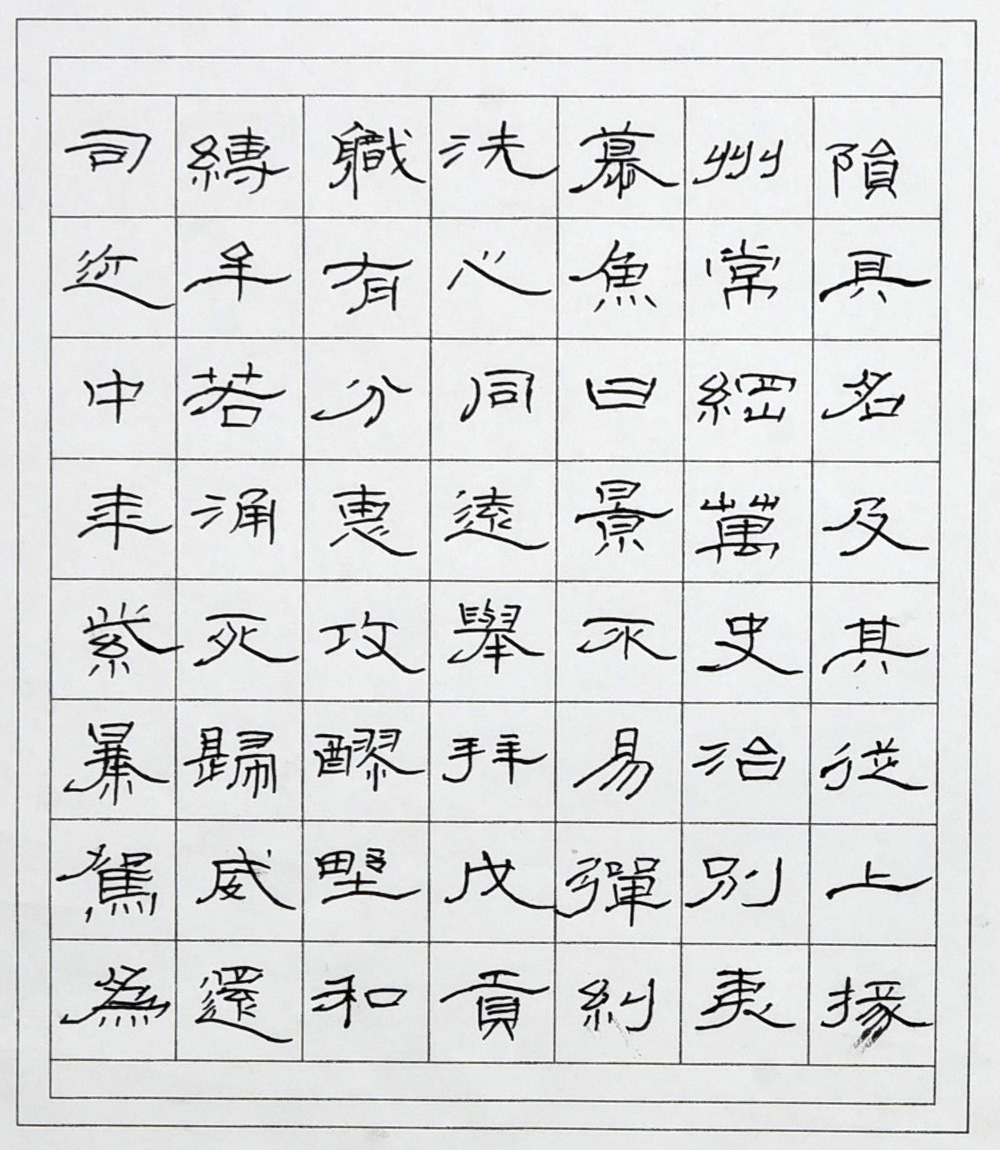 隕具名及其從上掾
州常綱萬史治別夷
慕魚曰景不易彈糾
洗心同遠舉拜戊貢
職有分惠攻醪野和
縛牟若涌死歸威還
司近中年紫暴駕為